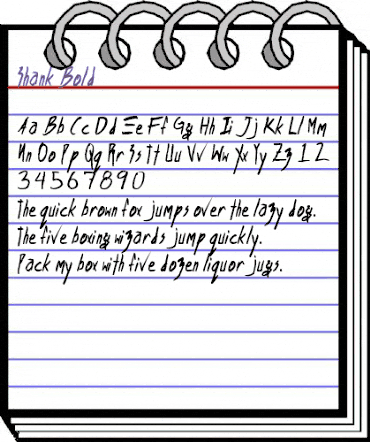 Shank Bold
Aa Bb Cc Dd Ee Ff Gg Hh Ii Jj Kk Ll Mm
Nn Oo Pp Qq Rr Ss Tt Uu Vv Ww Xx Yy Zz 1 2
3 4 5 6 7 8 9 0
The quick brown fox jumps over the lazy dog.
The five boxing wizards jump quickly.
Pack my box with five dozen liquor jugs.